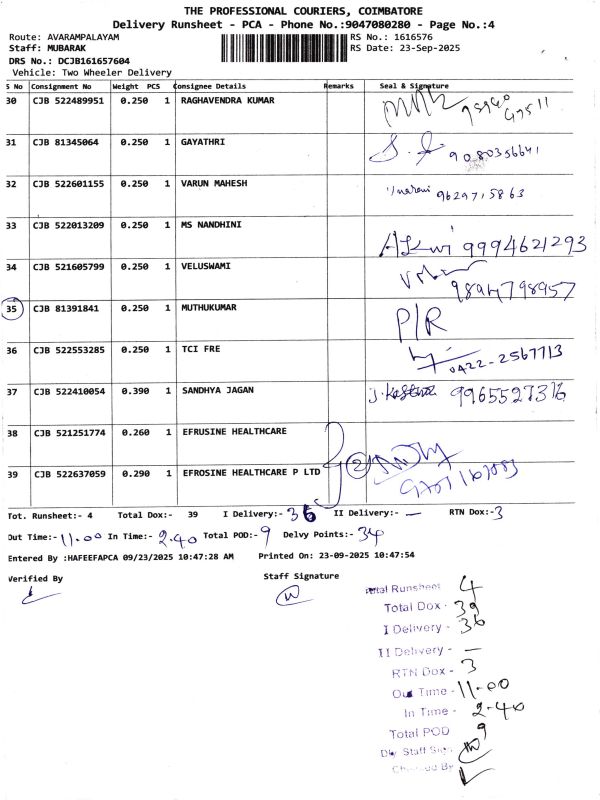 THE PROFESSIONAL COURIERS, COIMBATORE
Delivery Runsheet - PCA - Phone No.:9047080280 - Page No.:4
Route: AVARAMPALAYAM RS No.: 1616576
Staff: MUBARAK RS Date: 23-Sep-2025
DRS No.: DCJB161657604
Vehicle: Two Wheeler Delivery
S No Consignment No Weight PCS Consignee Details Remarks Seal & Signature
30 CJB 522489951 0.250 1 RAGHAVENDRA KUMAR
31 CJB 81345064 0.250 1 GAYATHRI 9080356641
32 CJB 522601155 0.250 1 VARUN MAHESH 9629715863
33 CJB 522013209 0.250 1 MS NANDHINI 9994621293
34 CJB 521605799 0.250 1 VELUSWAMI 9894798957
35 CJB 81391841 0.250 1 MUTHUKUMAR P/R
36 CJB 522553285 0.250 1 TCI FRE 0422-2567713
37 CJB 522410054 0.390 1 SANDHYA JAGAN 9965527316
38 CJB 521251774 0.260 1 EFRUSINE HEALTHCARE
39 CJB 522637059 0.290 1 EFROSINE HEALTHCARE P LTD 2
Tot. Runsheet:- 4 Total Dox:- 39 I Delivery:- 36 II Delivery:- — RTN Dox:-3
Out Time:-11.00 In Time:- 2.40 Total POD:- 9 Delvy Points:- 34
Entered By :HAFEEFAPCA 09/23/2025 10:47:28 AM Printed On: 23-09-2025 10:47:54
Verified By Staff Signature
Total Runsheet 4
Total Dox - 39
I Delivery - 36
II Delivery - —
RTN Dox - 3
Out Time - 11.00
In Time - 2.40
Total POD 9
Dly Staff Sign
Checked By